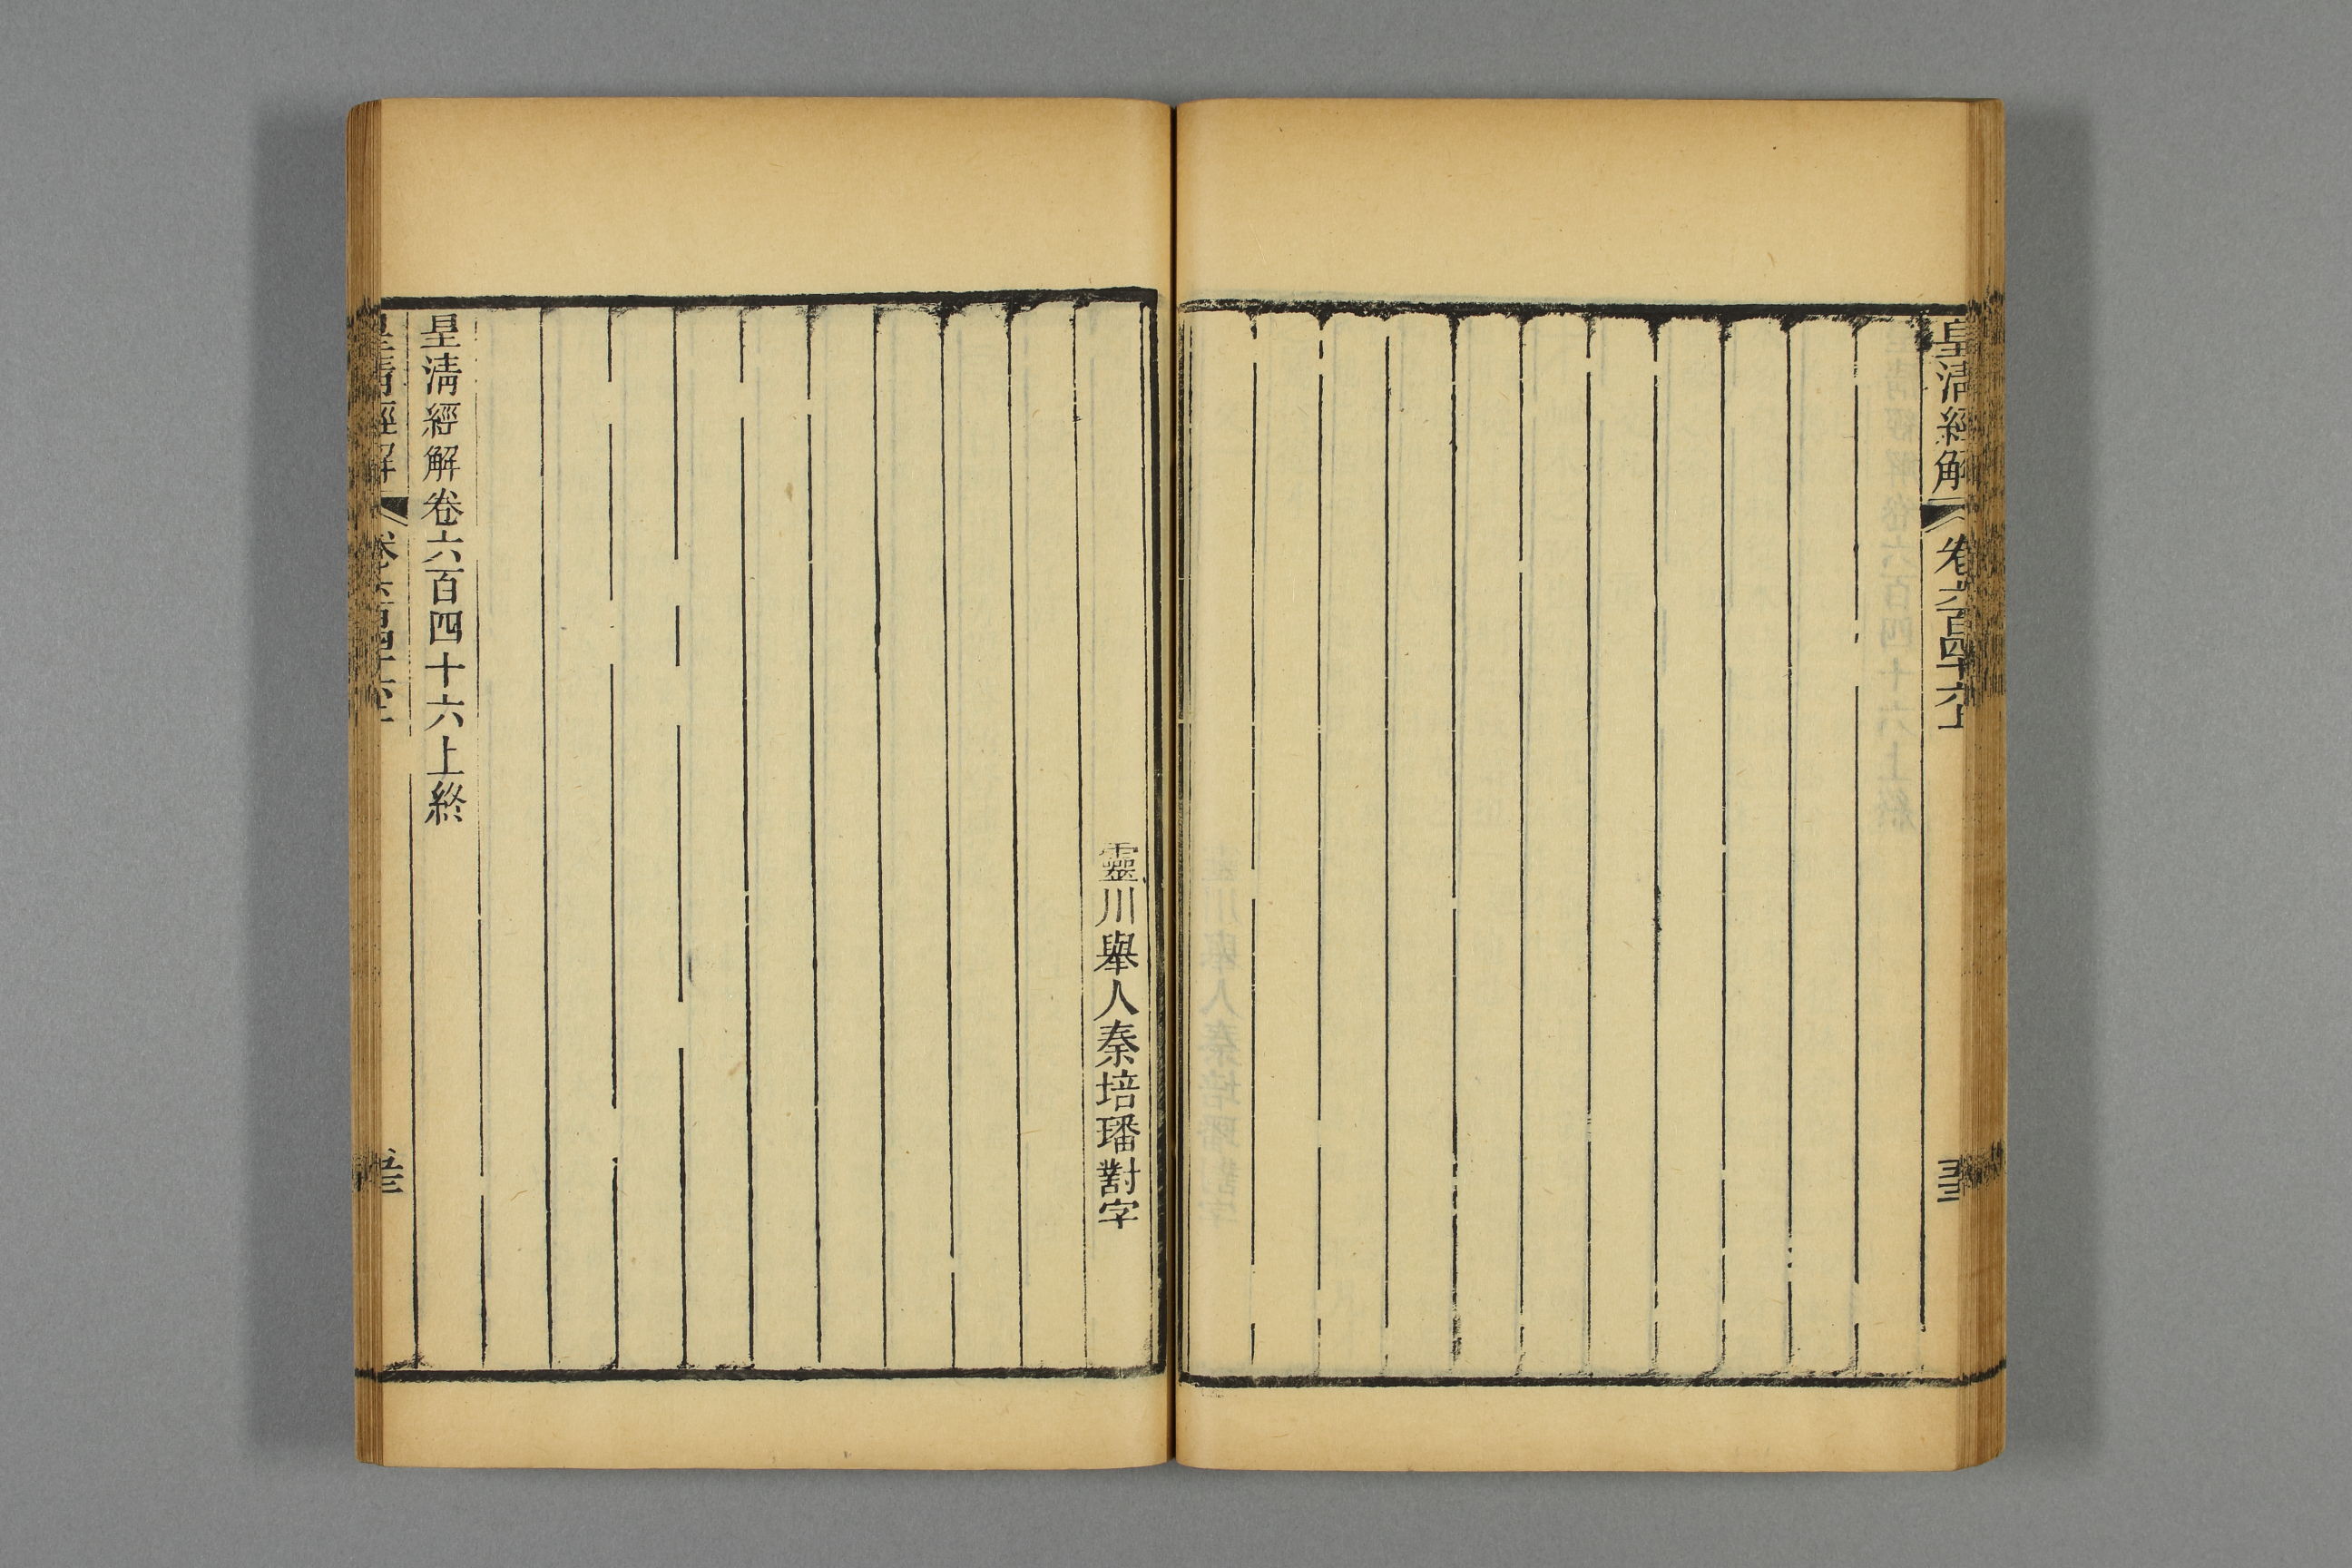 皇清經解 卷六百四十六上
靈川舉人秦培璠對字
皇清經解卷六百四十六上終
皇清經解 卷六百四十六上